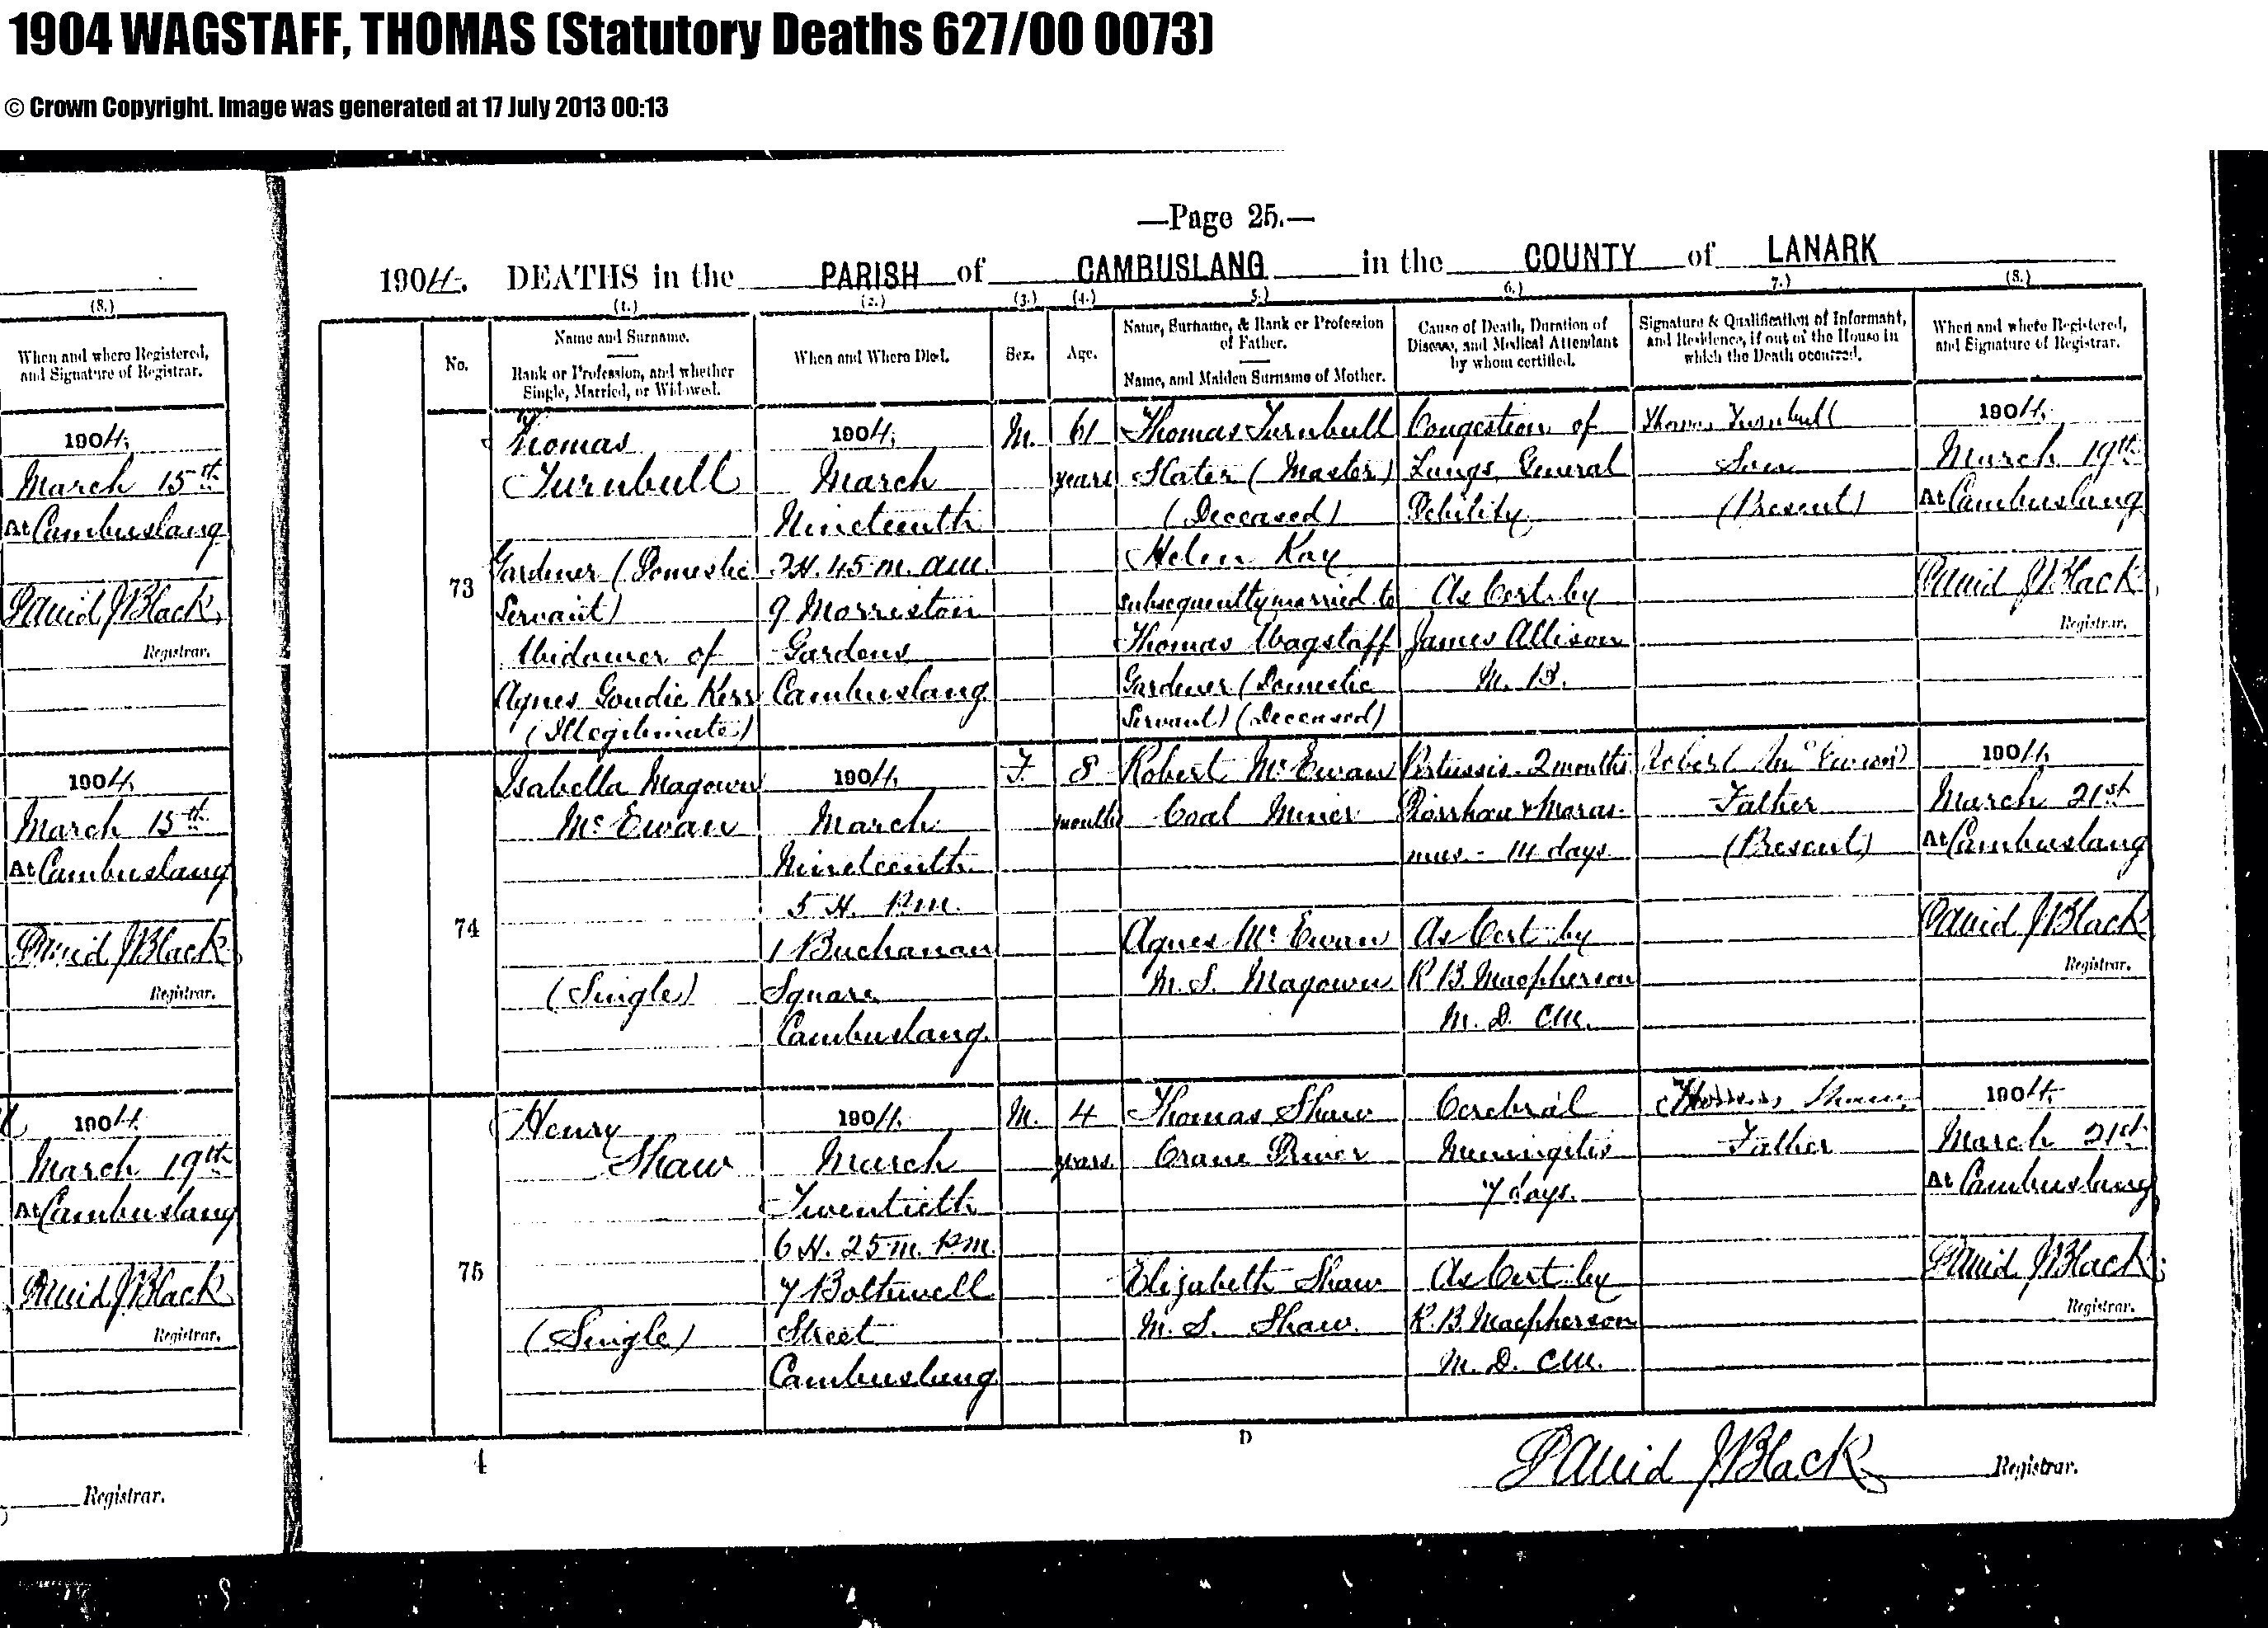 1904 WAGSTAFF, THOMAS (Statutory Deaths 627/00 0073)
© Crown Copyright. Image was generated at 17 July 2013 00:13
(8.)
When and where Registered,
and Signature of Registrar.
1904,
March 15th
At Cambuslang
David J Black,
Registrar.
1904.
March 15th
At Cambuslang
David J Black,
Registrar.
1904.
March 19th
At Cambuslang
David J Black
Registrar.
Registrar.
—Page 25.—
1904. DEATHS in the PARISH of CAMBUSLANG in the COUNTY of LANARK
(1.) (2.) (3.) (4.) 5.) 6.) 7.) (8.)
No.
Name and Surname.
Rank or Profession, and whether
Single, Married, or Widowed.
When and Where Died.
Sex.
Age.
Name, Surname, & Rank or Profession
of Father.
Name, and Maiden Surname of Mother.
Cause of Death, Duration of
Disease, and Medical Attendant
by whom certified.
Signature & Qualification of Informant,
and Residence, if out of the House in
which the Death occurred.
When and where Registered,
and Signature of Registrar.
73
Thomas
Turnbull
Gardener (Domestic
Servant)
Widower of
Agnes Goudie Kerr
(Illegitimate)
1904,
March
Nineteenth
H. 45 m. a.m.
9 Morriston
Gardens
Cambuslang
M.
61
years
Thomas Turnbull
Slater (Master)
(Deceased)
Helen Kay
subsequently married to
Thomas Wagstaff
Gardener (Domestic
Servant) (Deceased)
Congestion of
Lungs, General
Debility,
As Cert. by
James Allison
M. B.
Thomas Turnbull
Son
(Present)
1904.
March 19th
At Cambuslang
David J Black,
Registrar.
74
Isabella Magown
McEwan
(Single)
1904.
March
Nineteenth
5 H. P.M.
1 Buchanan
Square
Cambuslang.
F.
8
months
Robert McEwan
Coal Miner
Agnes McEwan
M.S. Magown
Pertussis - 2 months
Diorrhoea & Maras-
mus - 14 days
As Cert by
R B. Macpherson
M. D. CM.
Robert McEwan
Father
(Present)
1904.
March 21st
At Cambuslang
David J Black
Registrar.
75
Henry
Shaw
(Single)
1904.
March
Twentieth
6 H. 25 m. P.M.
7 Bothwell
Street
Cambuslang
M.
4
years.
Thomas Shaw
Crane Driver
Elizabeth Shaw
M. S. Shaw.
Cerebral
Meningitis
7 days.
As Cert by
R. B. Macpherson
M. D. CM.
Thomas Shaw
Father
1904.
March 21st
At Cambuslang
David J Black,
Registrar.
4
D
David J Black Registrar.